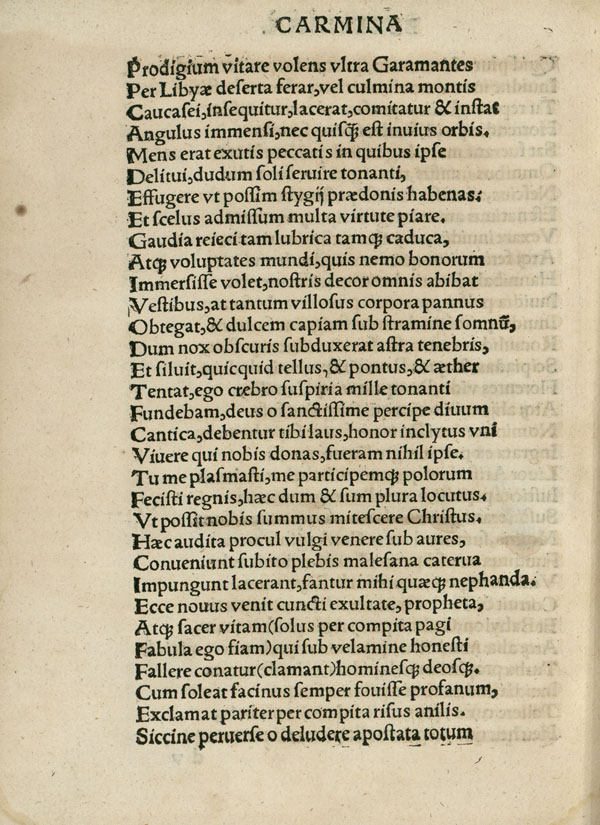 CARMINA
Prodigium vitare volens vltra Garamantes
Per Libyæ deserta ferar, vel culmina montis
Caucasei, insequitur, lacerat, comitatur & instat
Angulus immensi, nec quisqꝫ est inuius orbis.
Mens erat exutis peccatis in quibus ipse
Delitui, dudum soli seruire tonanti,
Effugere vt possim stygij prædonis habenas:
Et scelus admissum multa virtute piare.
Gaudia reieci tam lubrica tamqꝫ caduca,
Atqꝫ voluptates mundi, quis nemo bonorum
Immersisse volet, nostris decor omnis abibat
Vestibus, at tantum villosus corpora pannus
Obtegat, & dulcem capiam sub stramine somnū,
Dum nox obscuris subduxerat astra tenebris,
Et siluit, quicquid tellus, & pontus, & æther
Tentat, ego crebro suspiria mille tonanti
Fundebam, deus o sanctissime percipe diuum
Cantica, debentur tibi laus, honor inclytus vni
Viuere qui nobis donas, fueram nihil ipse.
Tu me plasmasti, me participemqꝫ polorum
Fecisti regnis, hæc dum & sum plura locutus.
Vt possit nobis summus mitescere Christus.
Hæc audita procul vulgi venere sub aures,
Conueniunt subito plebis malesana caterua
Impungunt lacerant, fantur mihi quæqꝫ nephanda.
Ecce nouus venit cuncti exultate, propheta,
Atqꝫ sacer vitam (solus per compita pagi
Fabula ego fiam) qui sub velamine honesti
Fallere conatur (clamant) hominesqꝫ deosqꝫ.
Cum soleat facinus semper fouisse profanum,
Exclamat pariter per compita risus anilis.
Siccine peruerse o deludere apostata totum